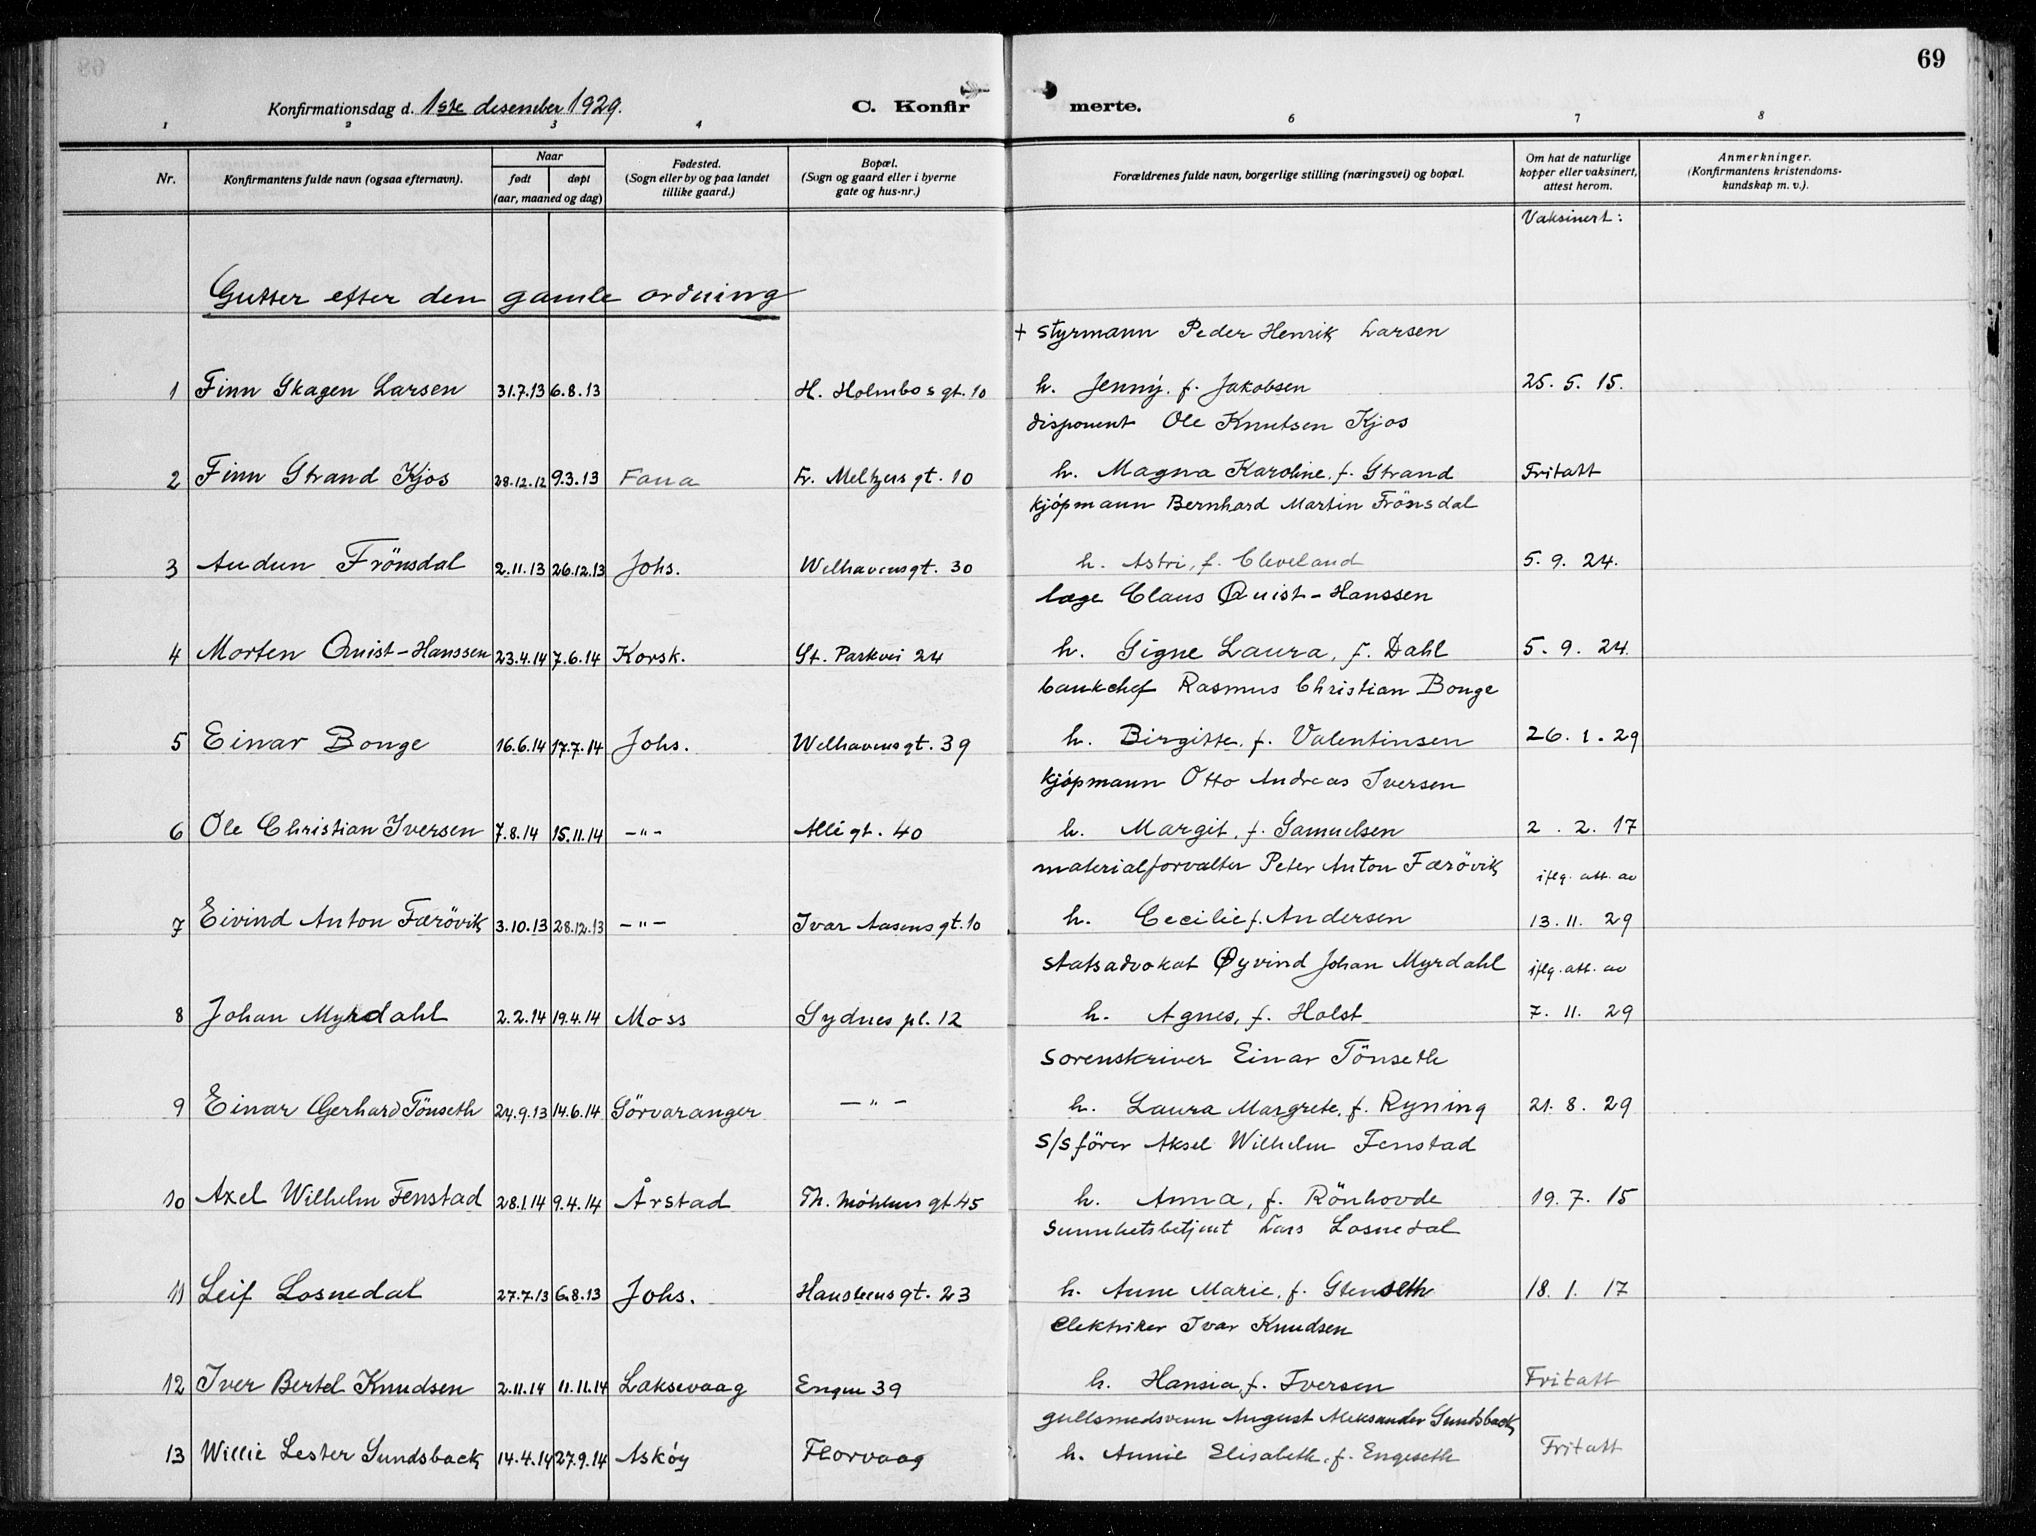 69
Konfirmationsdag d. 1ste desember 1929.
C. Konfir
merte.
1 2 3 4 6 7 8
Nr.
Konfirmantens fulde navn (ogsaa efternavn).
Naar
født døpt
(aar, maaned og dag)
Fødested.
(Sogn eller by og paa landet
tillike gaard.)
Bopæl.
(Sogn og gaard eller i byerne
gate og hus-nr.)
Forældrenes fulde navn, borgerlige stilling (næringsvei) og bopæl.
Om hat de naturlige
kopper eller vaksinert,
attest herom.
Anmerkninger.
(Konfirmantens kristendoms-
kundskap m. v.).
Vaksinert:
Gutter efter den gamle ordning
+ styrmann Peder Henrik Larsen
1 Finn Skagen Larsen 31.7.13 6.8.13 H. Holmbos gt. 10 h. Jenny. f. Jakobsen 25. 5. 15.
disponent Ole Knutsen Kjos
2 Finn Strand Kjos 28.12.12 9.3.13 Fana Fr. Meltzers gt. 10 h. Magna Karoline. f. Strand Fritatt
kjöpmann Bernhard Martin Frönsdal
3 Audun Frönsdal 2.11.13 26.12.13 Johs. Welhavensgt. 30 h. Astri, f. Cleveland 5. 9. 24.
læge Claus Quist-Hanssen
4 Morten Quist-Hanssen 23.4.14 7.6.14 Korsk. St. Parkvei 24 h. Signe Laura, f. Dahl 5. 9. 24.
bankchef Rasmus Christian Bonge
5 Einar Bonge 16.6.14 17.7.14 Johs. Welhavensgt. 39 h. Birgitte. f. Valentinsen 26. 1. 29
kjöpmann Otto Andreas Iversen
6 Ole Christian Iversen 7.8.14 15.11.14 -"- Allégt. 40 h. Margit. f. Samuelsen 2. 2. 17
materialforvalter Peter Anton Færövik iflg. att. av
7 Eivind Anton Færövik 3.10.13 28.12.13 -"- Ivar Aasens gt. 10 h. Cecilie f. Andersen 13. 11. 29
statsadvokat Øyvind Johan Myrdahl iflg. att. av
8 Johan Myrdahl 2.2.14 19.4.14 Moss Sydnes pl. 12 h. Agnes, f. Holst 7. 11. 29
sorenskriver Einar Tönseth
9 Einar Gerhard Tönseth 24.9.13 14.6.14 Sörvaranger -"- h. Laura Margrete. f. Ryning 21. 8. 29
s/s förer Aksel Wilhelm Fenstad
10 Axel Wilhelm Fenstad 28.1.14 9.4.14 Årstad Th. Møhlens gt 45 h. Anna, f. Rönhovde 19. 7. 15
sunnhetsbetjent Lars Losnedal
11 Leif Losnedal 27.7.13 6.8.13 Johs. Hansteensgt. 23 h. Anne Marie, f. Stenseth 18. 1. 17
elektriker Ivar Knudsen
12 Iver Bertel Knudsen 2.11.14 11.11.14 Laksevaag Engen 39 h. Hansia, f. Iversen Fritatt
gullsmedsvenn August Aleksander Sundsback
13 Willie Lester Sundsback 14.4.14 27.9.14 Askøy Florvaag h. Annie Elisabeth. f. Engeseth Fritatt